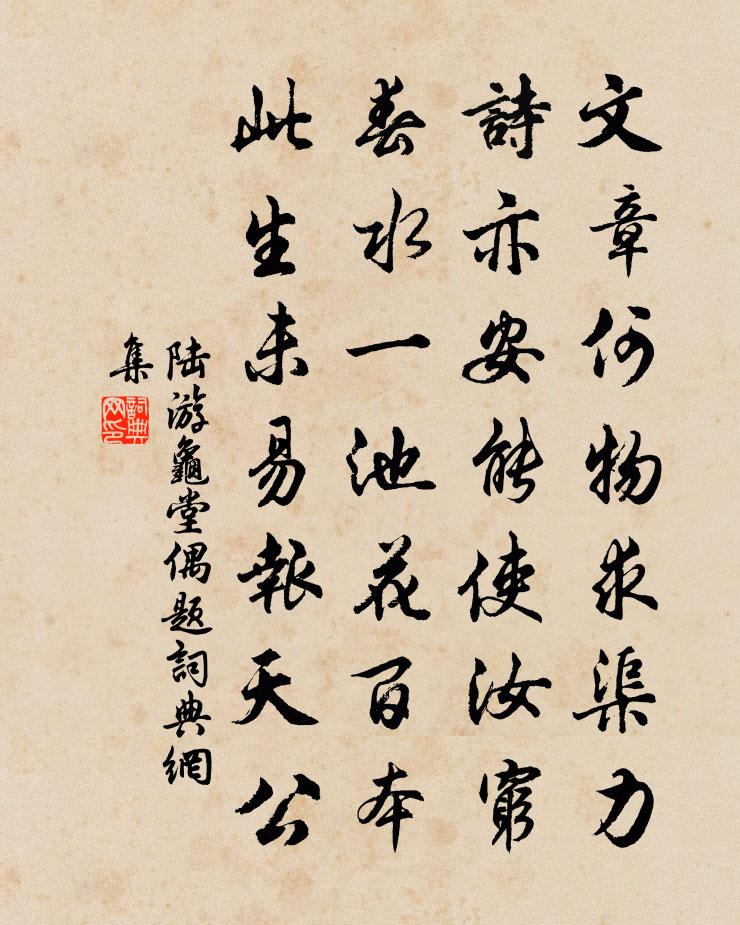 文章何物求渠力
詩亦安能使汝窮
春水一池花百本
此生未易報天公
陆游龜堂偶题詞典網
集
詞典
网印